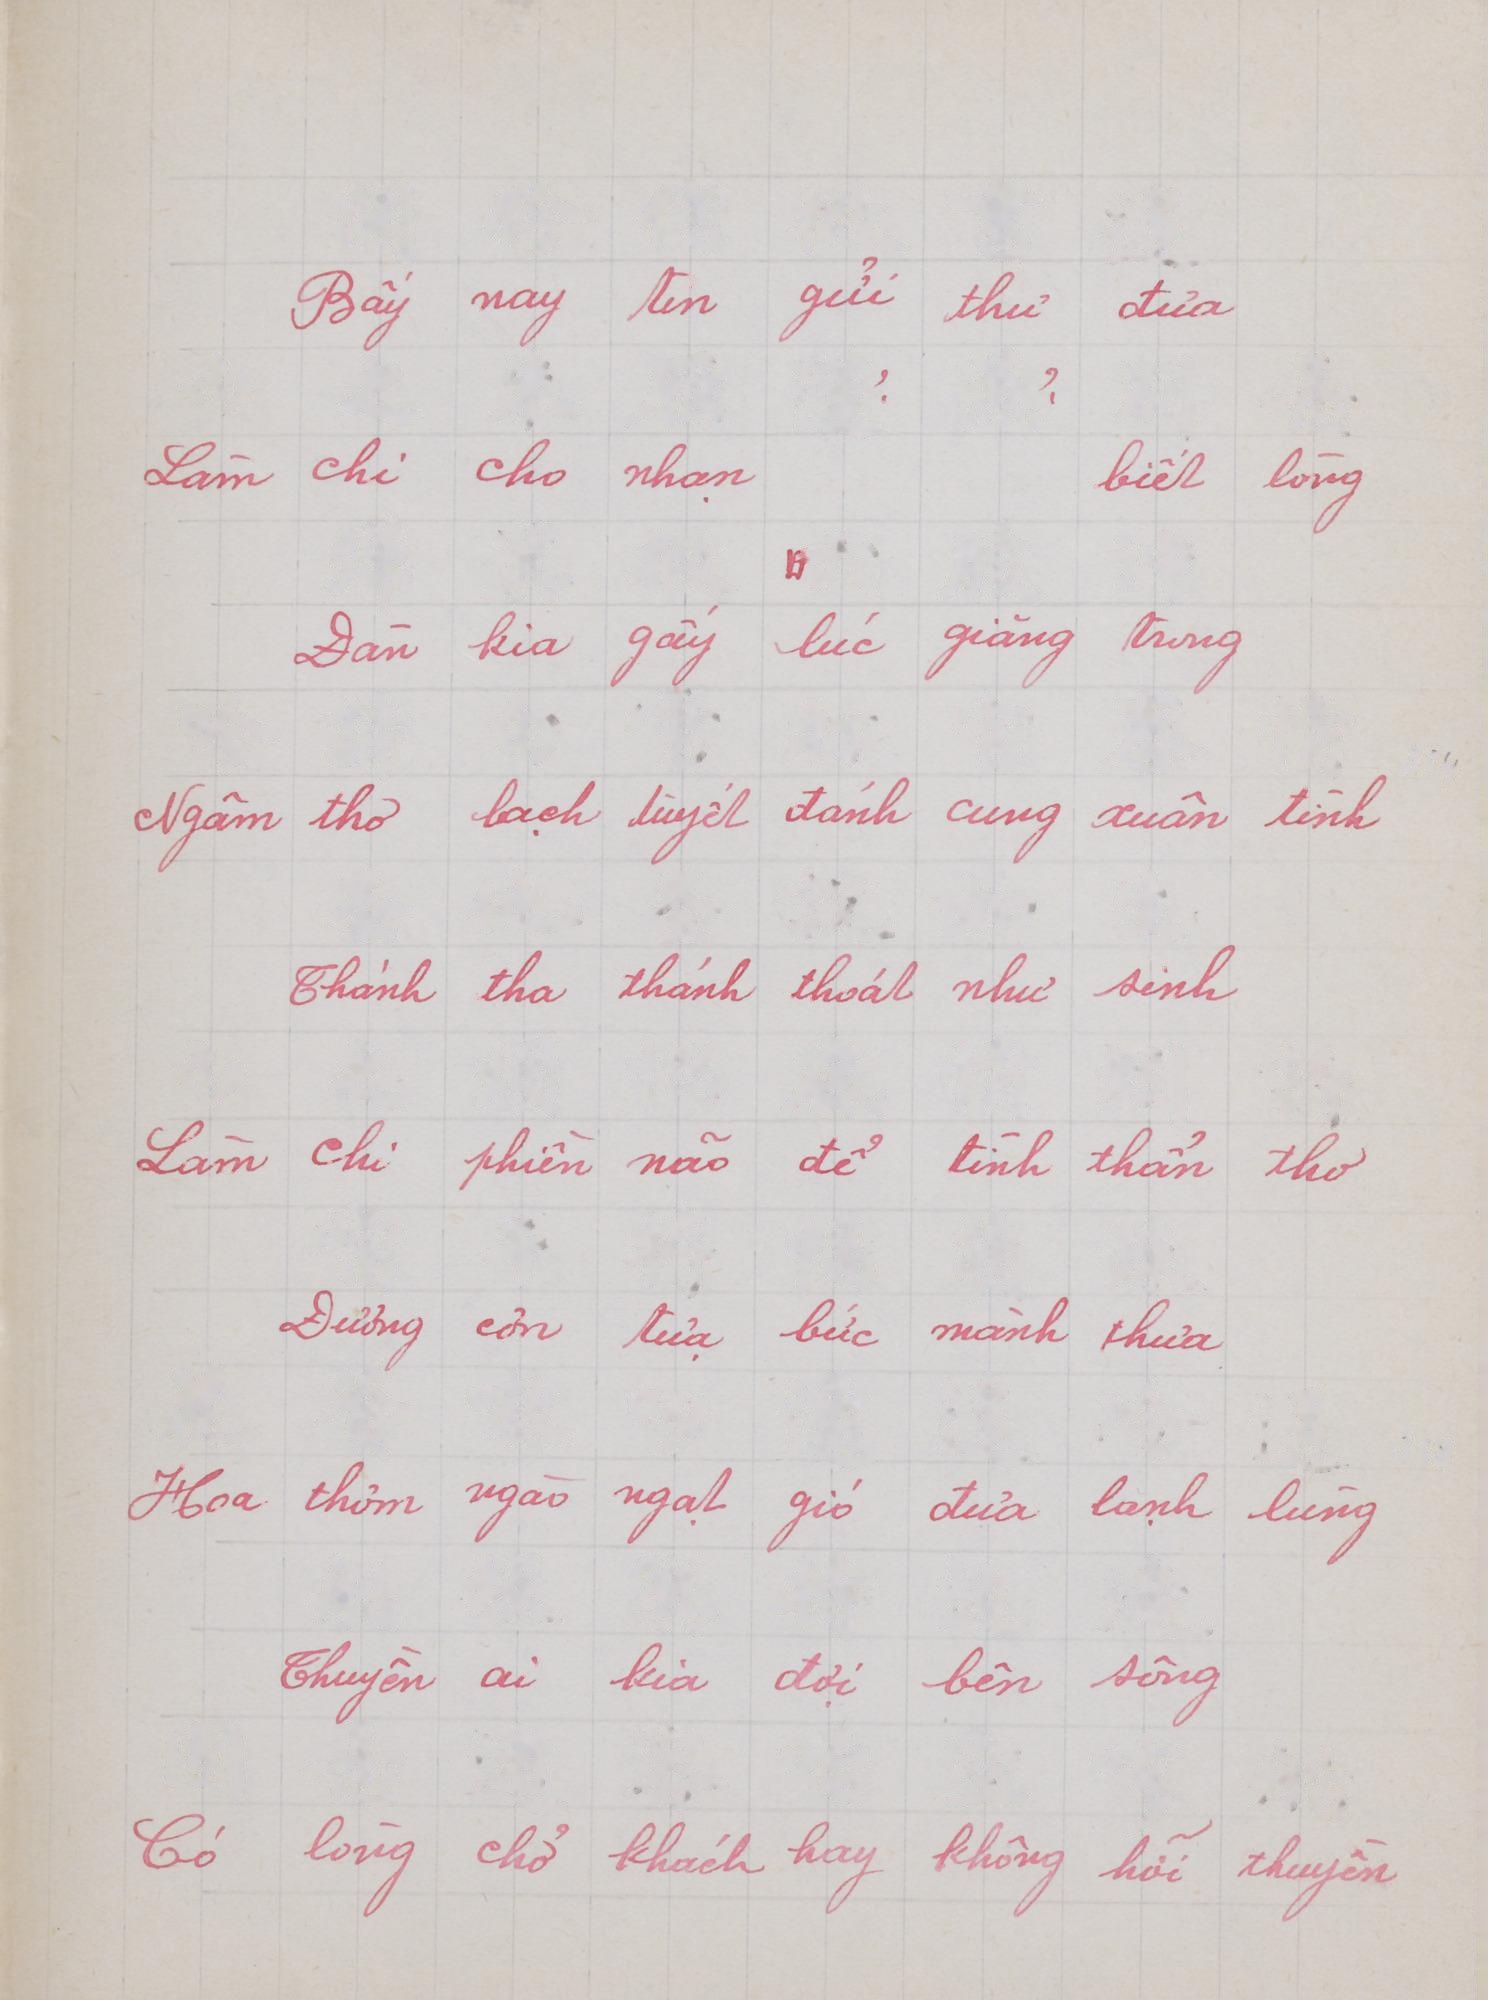 Bấy nay tin gửi thư đưa
? ?
Làm chi cho nhạn biết lòng
Đàn kia gẩy lúc giăng trong
Ngâm thơ bạch tuyết đánh cung xuân tình
Thánh tha thánh thoát như sinh
Làm chi phiền não để tình thẩn thơ
Đương còn tựa bức mành thưa
Hoa thơm ngào ngạt gió đưa lạnh lùng
Thuyền ai kia đợi bên sông
Có lòng chở khách hay không hỡi thuyền